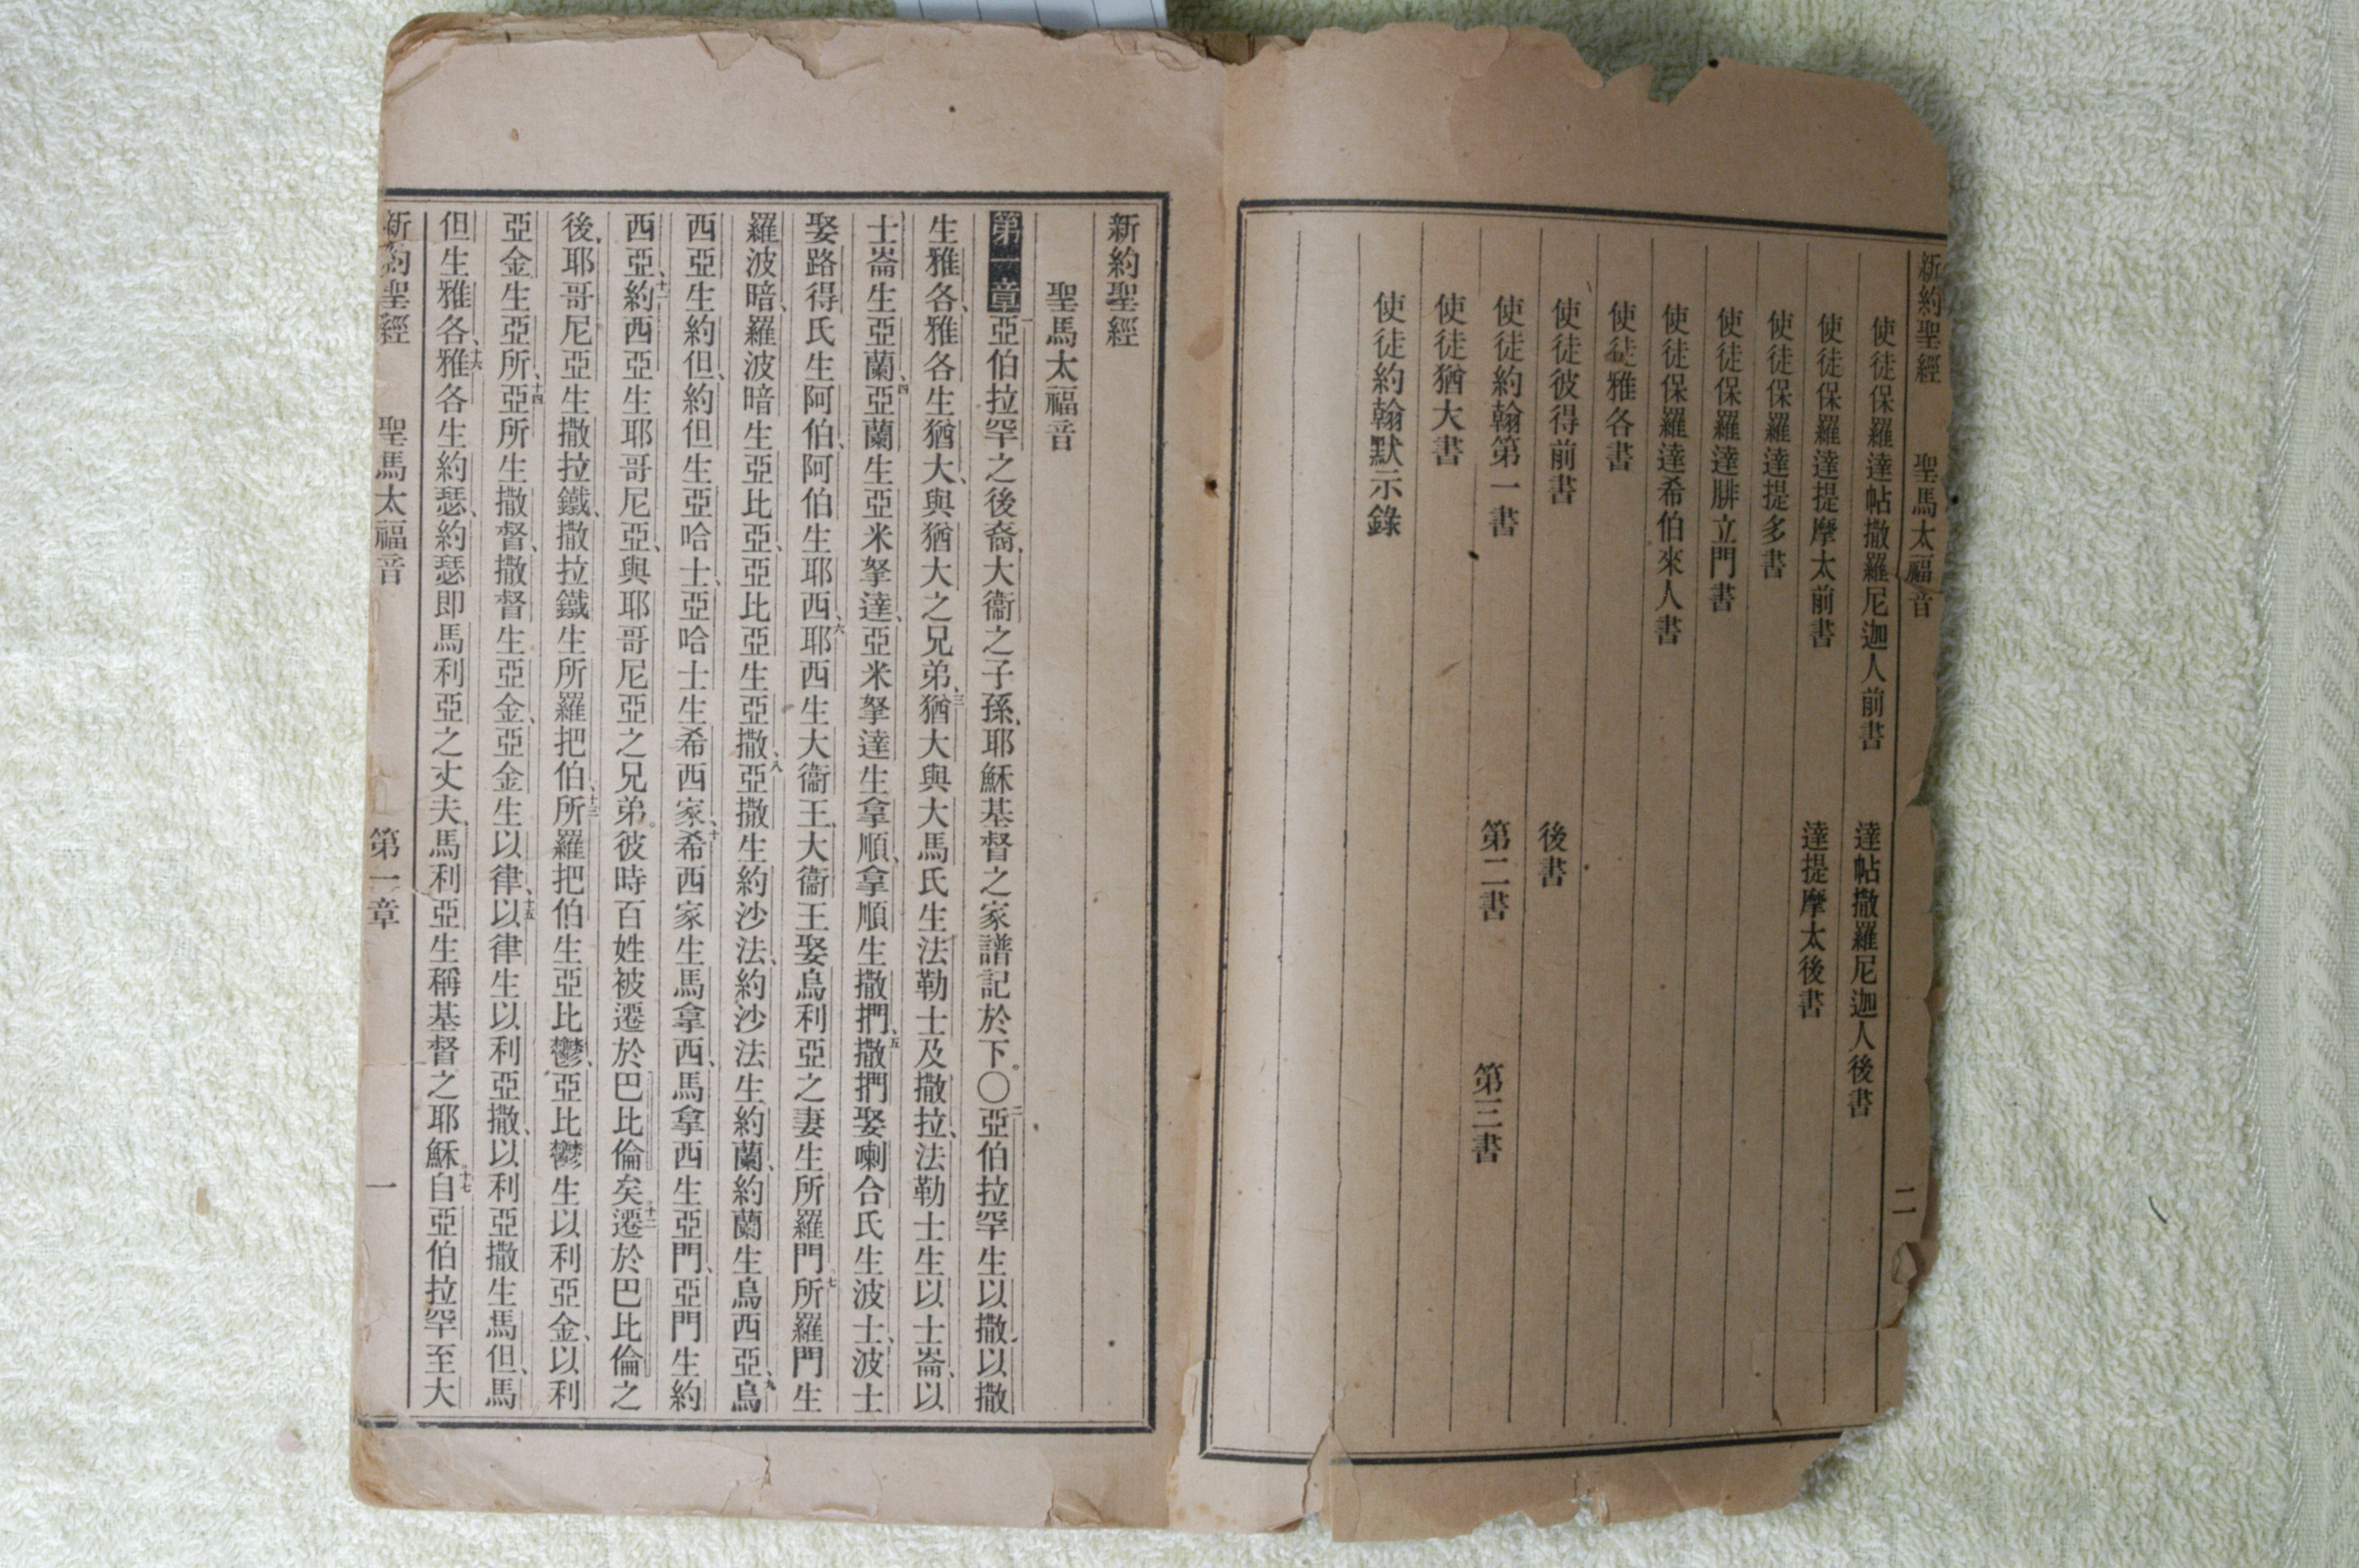 新約聖經　聖馬太福音　二
使徒保羅達帖撒羅尼迦人前書　達帖撒羅尼迦人後書
使徒保羅達提摩太前書　達提摩太後書
使徒保羅達提多書
使徒保羅達腓立門書
使徒保羅達希伯來人書
使徒雅各書
使徒彼得前書　後書
使徒約翰第一書　第二書　第三書
使徒猶大書
使徒約翰默示錄
新約聖經
聖馬太福音
第一章一亞伯拉罕之後裔、大衞之子孫、耶穌基督之家譜記於下。〇二亞伯拉罕生以撒、以撒
生雅各、雅各生猶大、與猶大之兄弟、三猶大與大馬氏生法勒士及撒拉、法勒士生以士崙、以
士崙生亞蘭、四亞蘭生亞米拏達、亞米拏達生拿順、拿順生撒捫、五撒捫娶喇合氏生波士、波士
娶路得氏生阿伯、阿伯生耶西、六耶西生大衞王、大衞王娶烏利亞之妻生所羅門、七所羅門生
羅波暗、羅波暗生亞比亞、亞比亞生亞撒、八亞撒生約沙法、約沙法生約蘭、約蘭生烏西亞、九烏
西亞生約但、約但生亞哈士、亞哈士生希西家、十希西家生馬拿西、馬拿西生亞門、亞門生約
西亞、十一約西亞生耶哥尼亞、與耶哥尼亞之兄弟。彼時百姓被遷於巴比倫矣、十二遷於巴比倫之
後、耶哥尼亞生撒拉鐵、撒拉鐵生所羅把伯、十三所羅把伯生亞比鬱、亞比鬱生以利亞金、以利
亞金生亞所、十四亞所生撒督、撒督生亞金、亞金生以律、十五以律生以利亞撒、以利亞撒生馬但、馬
但生雅各、十六雅各生約瑟、約瑟即馬利亞之丈夫、馬利亞生稱基督之耶穌。十七自亞伯拉罕至大
新約聖經　聖馬太福音　第一章　一